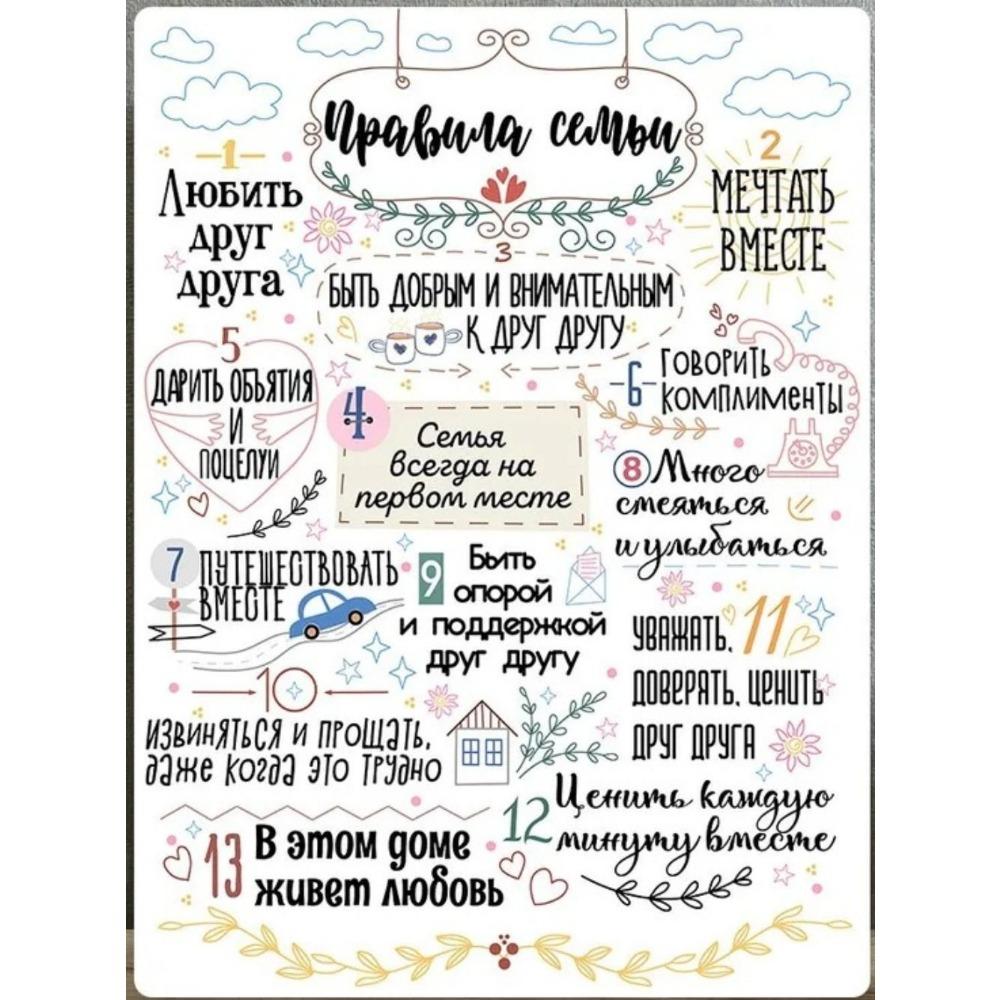 Правила семьи
1
Любить
друг
друга
2
МЕЧТАТЬ
ВМЕСТЕ
3
БЫТЬ ДОБРЫМ И ВНИМАТЕЛЬНЫМ
К ДРУГ ДРУГУ
4
Семья
всегда на
первом месте
5
ДАРИТЬ ОБЪЯТИЯ
И
ПОЦЕЛУИ
6
ГОВОРИТЬ
КОМПЛИМЕНТЫ
7
ПУТЕШЕСТВОВАТЬ
ВМЕСТЕ
8 Много
смеяться
и улыбаться
9
Быть
опорой
и поддержкой
друг другу
10
ИЗВИНЯТЬСЯ И ПРОЩАТЬ,
даже когда это трудно
11
УВАЖАТЬ,
ДОВЕРЯТЬ, ЦЕНИТЬ
ДРУГ ДРУГА
12 Ценить каждую
минуту вместе
13 В этом доме
живет любовь